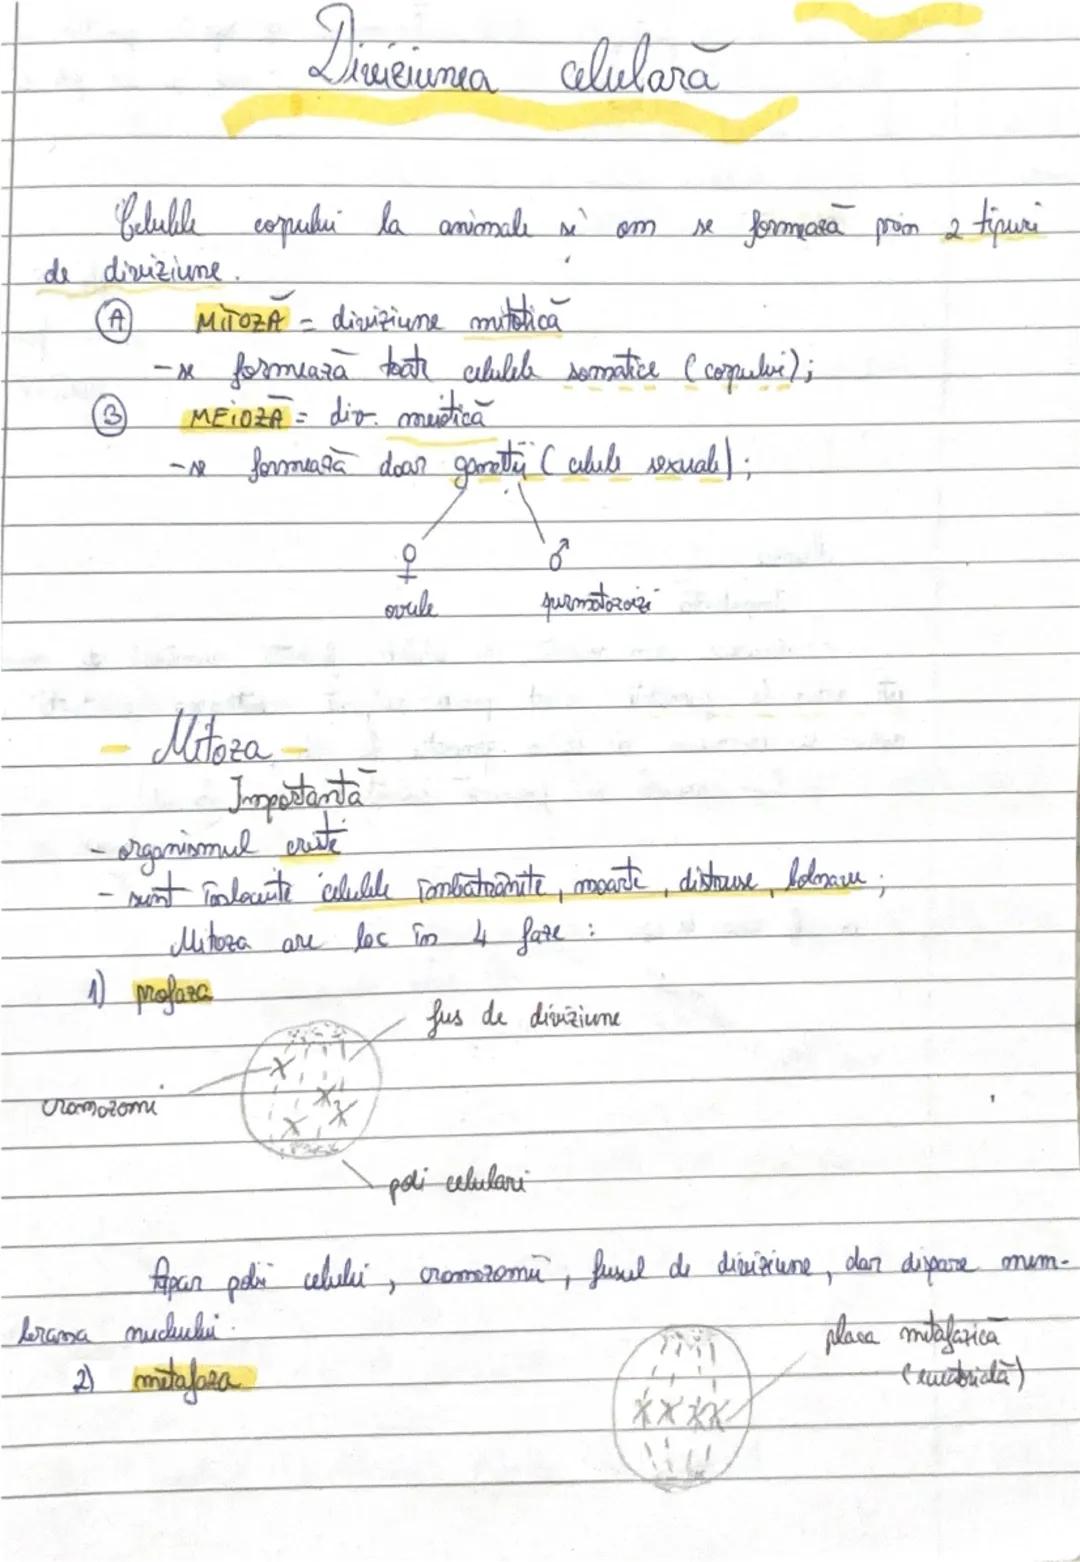 Diviziunea celulară
Celulele corpului la animale și om se formează prin 2 tipuri
de diviziune.
A MITOZĂ = diviziune mitotică
- se formează toate celulele somatice (corpului);
B MEIOZĂ = div. meiotică
- se formează doar gameții (celule sexuale);
♀ ♂
ovule spermatozoizi
- Mitoza -
Importanță
- organismul crește
- sunt înlocuite celulele îmbătrânite, moarte, distruse, bolnave;
Mitoza are loc în 4 faze:
1) profaza
fus de diviziune
cromozomi
poli celulari
Apar polii celulei, cromozomii, fusul de diviziune, dar dispare mem-
brana nucleului.
placa metafazică
2) metafaza
(ecuatorială)